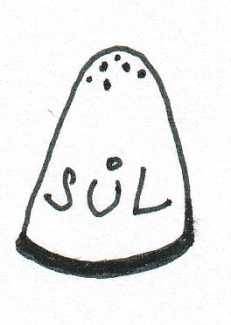 SŮL